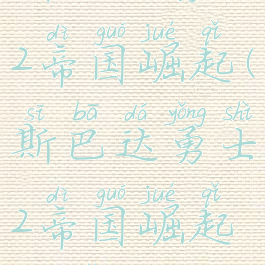 dì guó jué qǐ
2帝国崛起(
sī bā dá yǒng shì
斯巴达勇士
dì guó jué qǐ
2帝国崛起